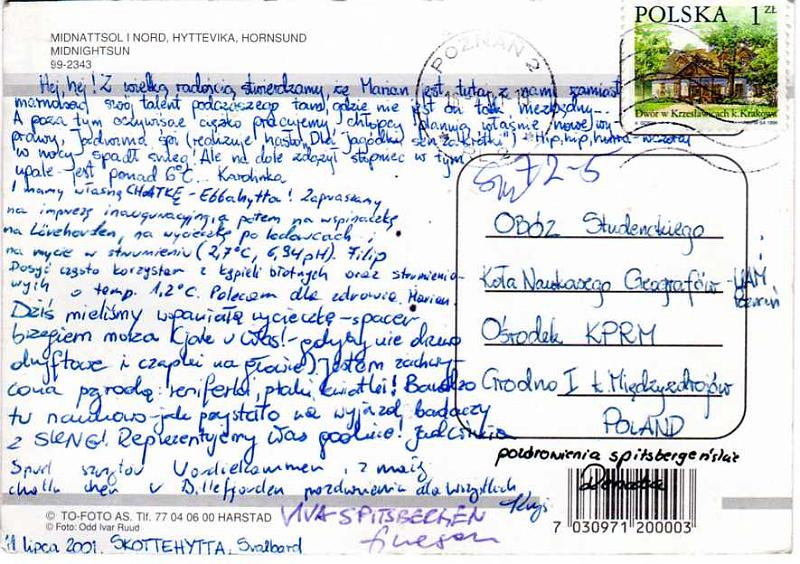 MIDNATTSOL I NORD, HYTTEVIKA, HORNSUND
MIDNIGHTSUN
99-2343
POLSKA 1 ZŁ
Dwór w Krzesławicach k. Krakowa
POZNAŃ 2
Hej, hej! Z wielką radością stwierdzamy, że Marian jest tutaj z nami, zamiast
marnować swój talent podczaszego tam, gdzie nie jest on tak niezbędny...
A poza tym oczywiście ciężko pracujemy, chłopcy planują właśnie nowe wy-
prawy, Jadwinia śpi (realizuje hasło „Dla jagódki sen za krótki") - Hip, hip, hurra - wczoraj
w nocy spadł śnieg! Ale na dole zdążył stopnieć w tym
upale - jest ponad 6°C... Karolinka
I mamy własną CHATKĘ - Ebbahytta! Zapraszamy
na imprezę inauguracyjną a potem na wspinaczkę
na Lövehovden, na wycieczkę po lodowcach i
na mycie w strumieniu (2,7°C, 6,94 pH). Filip
Dosyć często korzystam z kąpieli błotnych oraz strumienio-
wych o temp. 1,2°C. Polecam dla zdrowia. Marian.
Dziś mieliśmy wspaniałą wycieczkę - spacer
brzegiem morza (jak u Was! - gdyby nie drewno
dryftowe i czapki na głowie) Jestem zachwy-
cona przyrodą: reniferki, ptaki, kwiatki! Bardzo
tu naukowo - jak przystało na wyjazd badaczy
z SKNG! Reprezentujemy Was godnie!
Spod szczytów i z
w Billefjorden pozdrowienia dla wszystkich
72-5
Obóz Studenckiego
Koła Naukowego Geografów - UAM
Ośrodek KPRM
Grodno I k. Międzyzdrojów
POLAND
pozdrowienia spitsbergeńskie
Renata
VIVA SPITSBERGEN
© TO-FOTO AS. Tlf. 77 04 06 00 HARSTAD
© Foto: Odd Ivar Ruud
7 030971 200003
lipca 2001. SKOTTEHYTTA, Svalbard